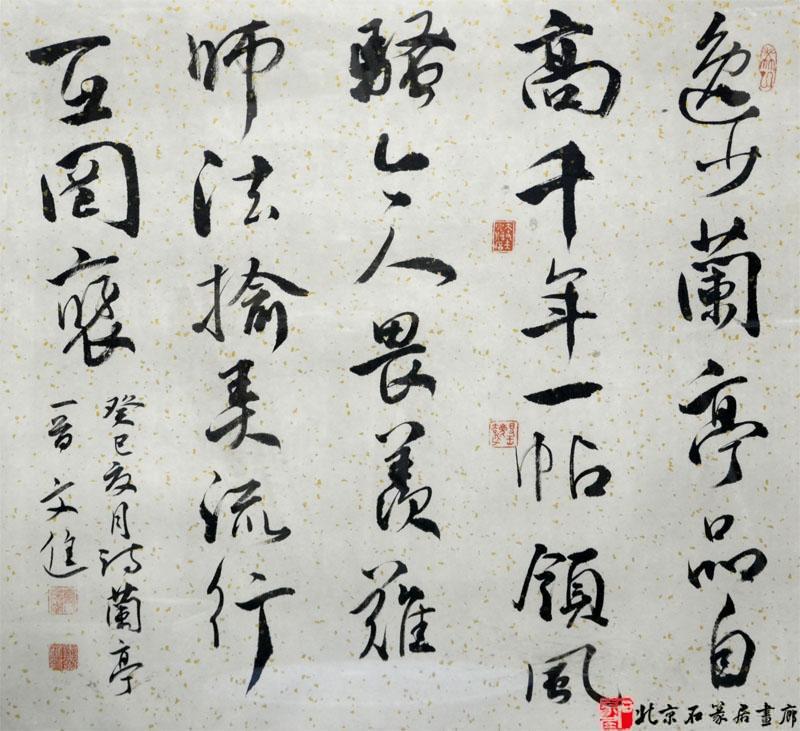 逸少蘭亭品自
高千年一帖領風
騷今人畏羨難
師法揄美流行
互罔襲
癸巳夏月詩蘭亭
一首 文進
北京石篆居畫廊